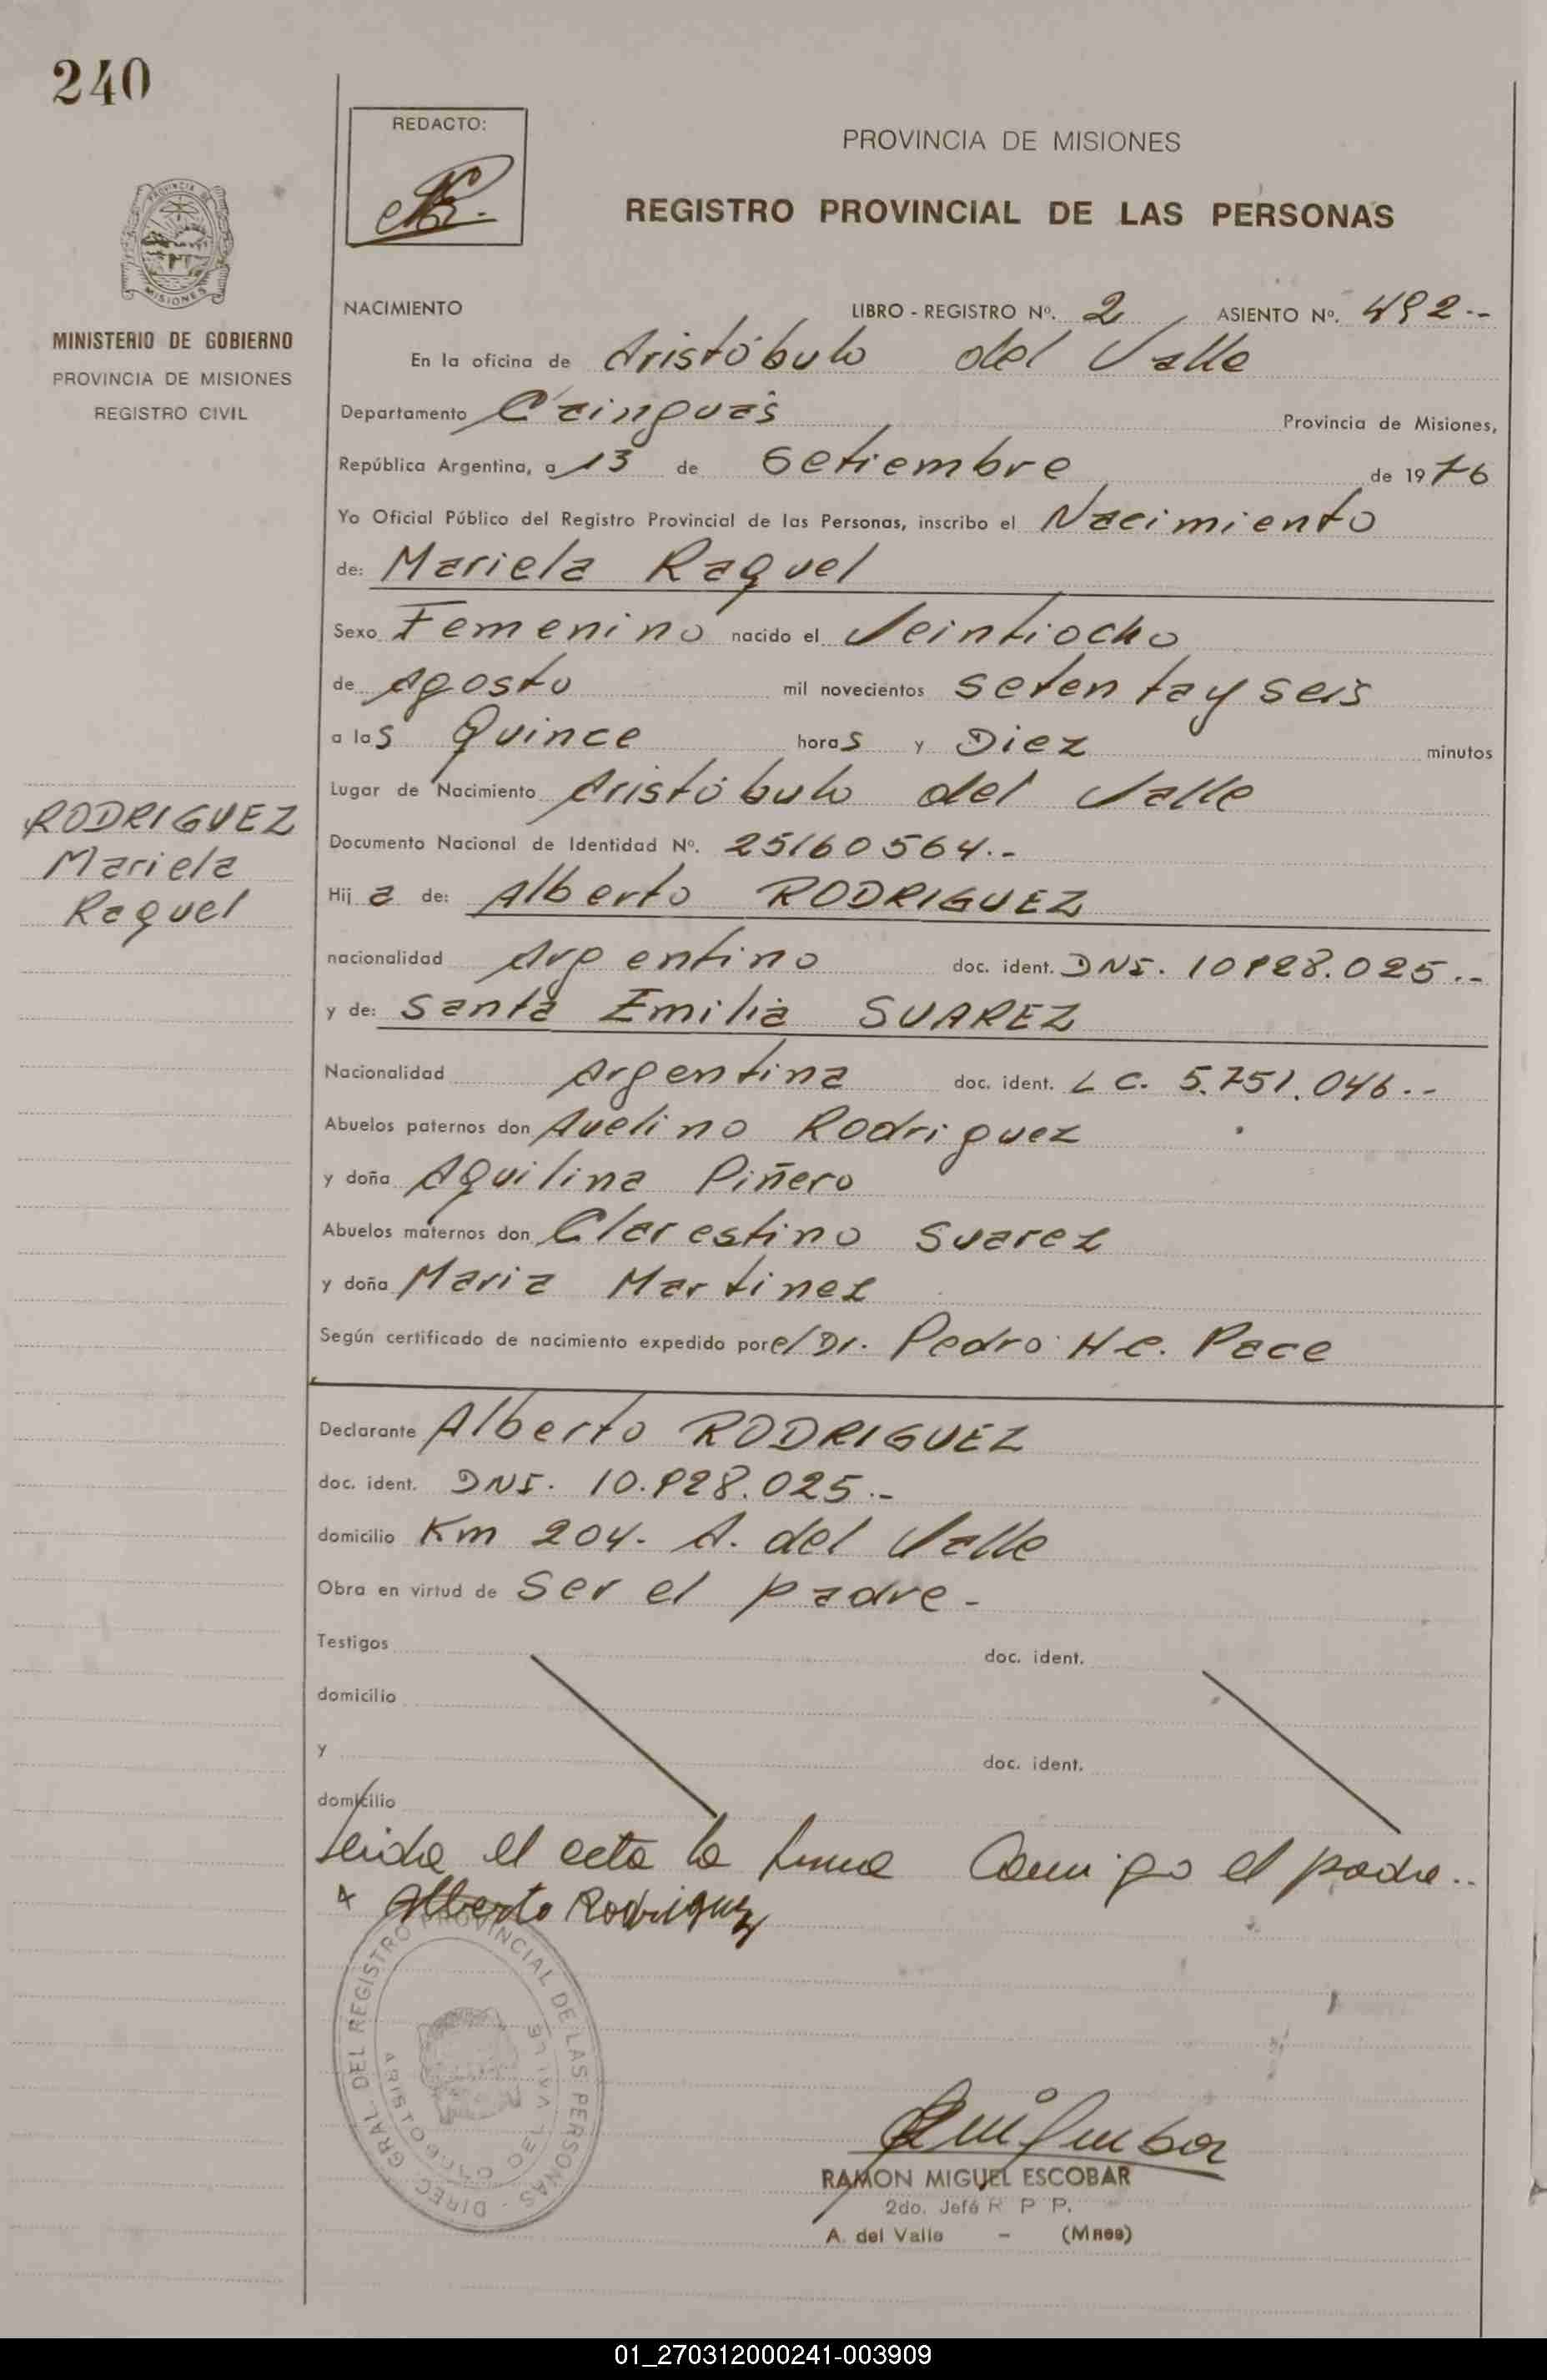 240
REDACTO:
PROVINCIA DE MISIONES
REGISTRO PROVINCIAL DE LAS PERSONAS
PROVINCIA DE
MISIONES
MINISTERIO DE GOBIERNO
PROVINCIA DE MISIONES
REGISTRO CIVIL
NACIMIENTO LIBRO - REGISTRO Nº. 2 ASIENTO Nº. 492.--
En la oficina de Aristóbulo del Valle
Departamento Cainguás Provincia de Misiones,
República Argentina, a 13 de Setiembre de 1976
Yo Oficial Público del Registro Provincial de las Personas, inscribo el Nacimiento
de: Mariela Raquel
Sexo Femenino nacido el Veintiocho
de Agosto mil novecientos setenta y seis
a las Quince horas y Diez minutos
Lugar de Nacimiento Aristóbulo del Valle
RODRIGUEZ
Mariela
Raquel
Documento Nacional de Identidad Nº. 25160564.-
Hija de: Alberto RODRIGUEZ
nacionalidad Argentino doc. ident. DNI. 10928.025.--
y de: Santa Emilia SUAREZ
Nacionalidad Argentina doc. ident. L C. 5.751.046.--
Abuelos paternos don Avelino Rodriguez
y doña Aquilina Piñero
Abuelos maternos don Clarestino Suarez
y doña Maria Martinez
Según certificado de nacimiento expedido por el Dr. Pedro H.C. Pace
Declarante Alberto RODRIGUEZ
doc. ident. DNI. 10.928.025.--
domicilio Km 204. A. del Valle
Obra en virtud de Ser el padre-
Testigos doc. ident.
domicilio
y doc. ident.
domicilio
Leida el acta la firma Conmigo el padre..
Alberto Rodriguez
DIREC. GRAL. DEL REGISTRO PROVINCIAL DE LAS PERSONAS
ARISTOBULO DEL VALLE
RAMON MIGUEL ESCOBAR
2do. Jefe R P P.
A. del Valle - (Mnes)
01_270312000241-003909